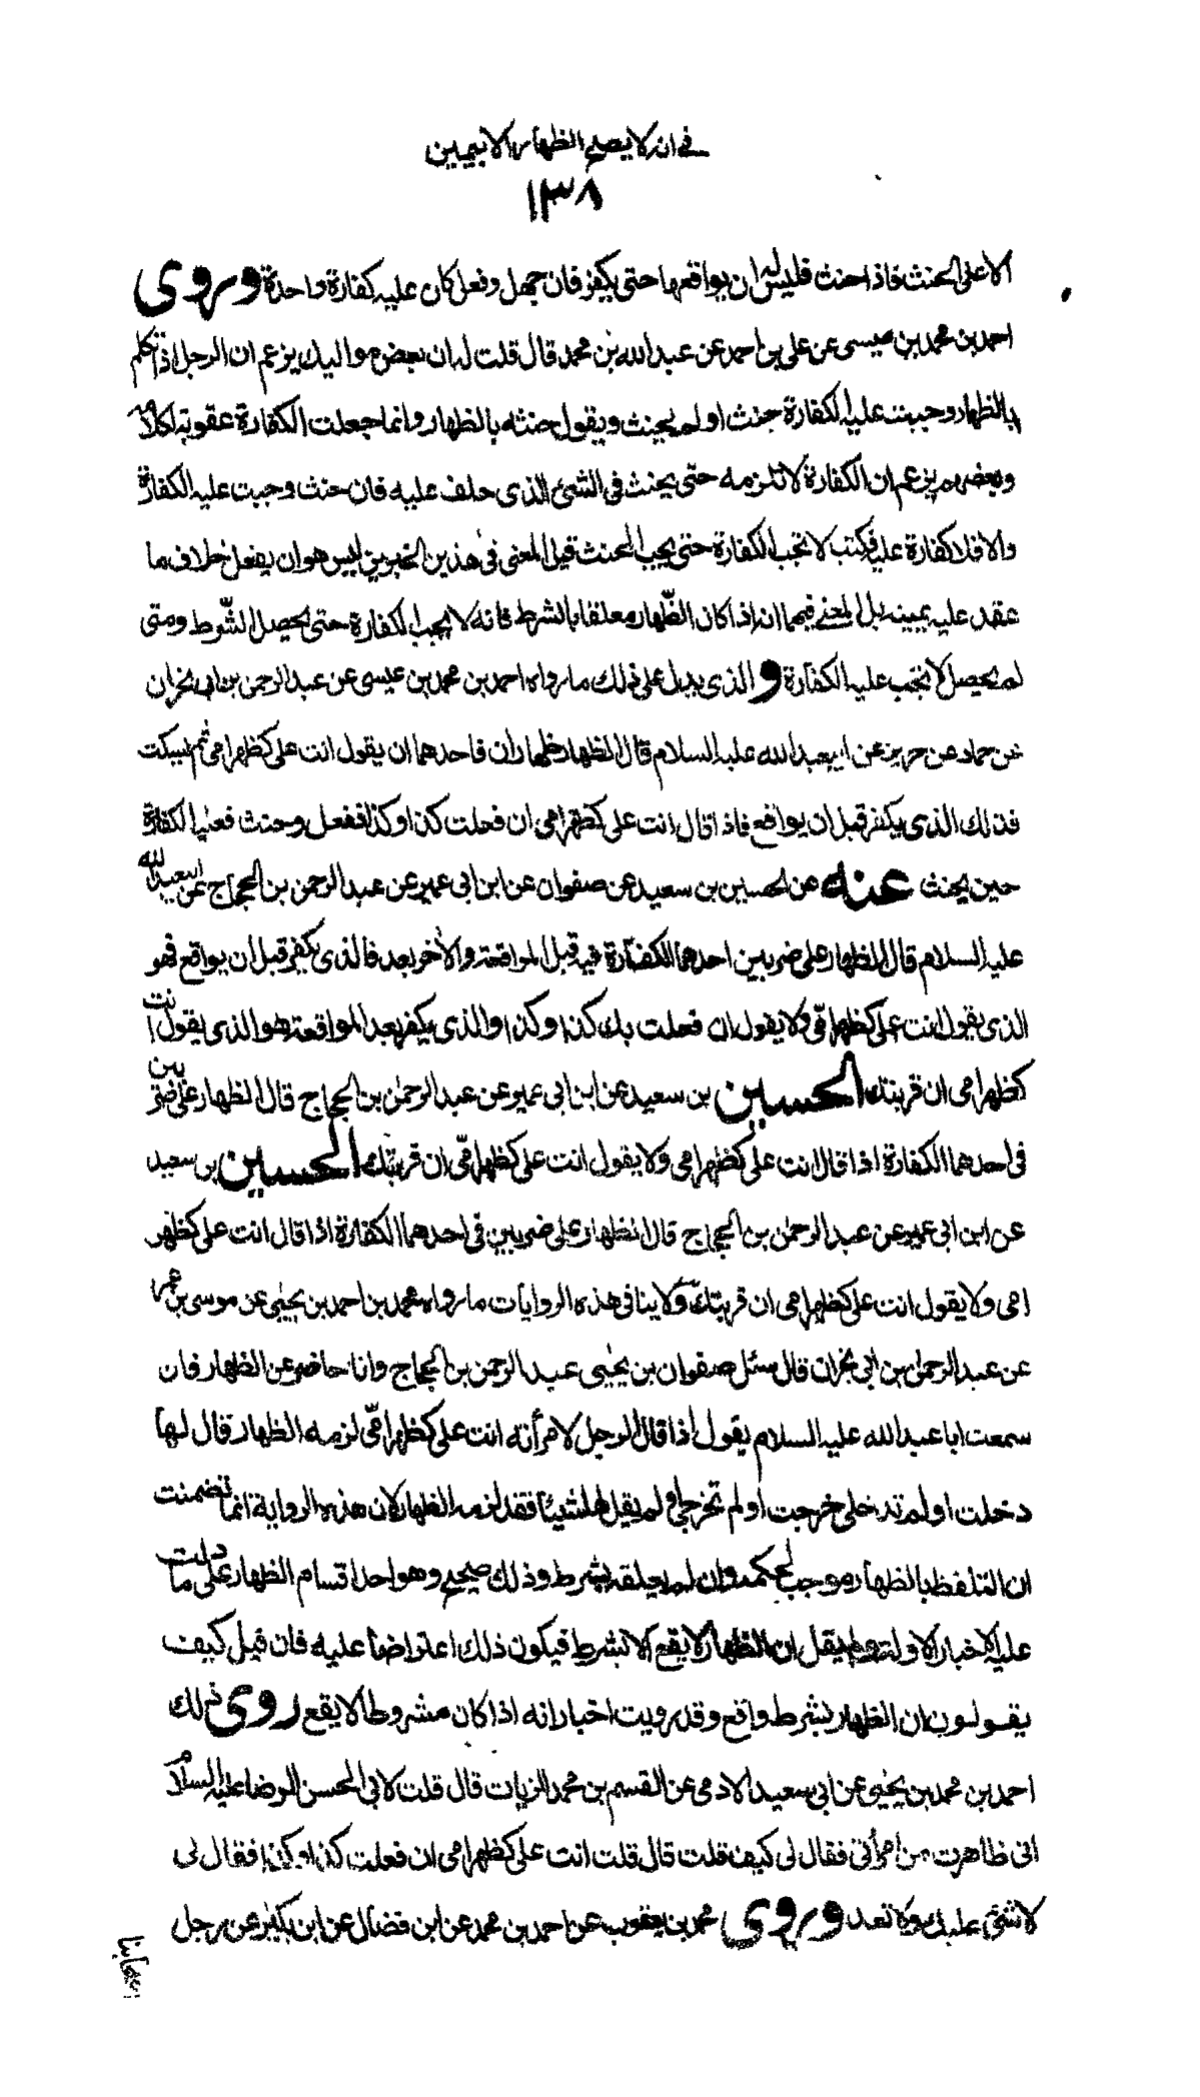 في انه لا يصلح الظهار الا بيمين
١٣٨
الا على الحنث فاذا حنث فليس له ان يواقعها حتى يكفر فان جهل وفعل كان عليه كفارة واحدة وروى
احمد بن محمد بن عيسى عن على بن احمد عن عبد الله بن محمد قال قلت له ان بعض مواليك يزعم ان الرجل اذا تكلم
بالظهار وجبت عليه الكفارة حنث او لم يحنث ويقول حنثه بالظهار وانما جعلت الكفارة عقوبة لكلامه
وبعضهم يزعم ان الكفارة لا تلزمه حتى يحنث في الشئ الذى حلف عليه فان حنث وجبت عليه الكفارة
والا فلا كفارة عليه فكتب لا تجب الكفارة حتى يجب الحنث قيل المعنى في هذين الخبرين ليس هو ان يفعل خلاف ما
عقد عليه يمينه بل المعنى فيهما انه اذا كان الظّهار معلقا بالشرط فانه لا يجب الكفارة حتى يحصل الشّرط ومتى
لم يحصل لا تجب عليه الكفارة و الذى يدل على ذلك ما رواه احمد بن محمد بن عيسى عن عبد الرحمن بن ابى نجران
عن حماد عن حريز عن ابيعبد الله عليه السلام قال الظهار ظهاران فاحدهما ان يقول انت على كظهر امى ثم يسكت
فذلك الذى يكفر قبل ان يواقع فاذا قال انت على كظهر امى ان فعلت كذا وكذا ففعل وحنث فعليه الكفارة
حين يحنث عنه عن الحسين بن سعيد عن صفوان عن ابن ابى عمير عن عبد الرحمن بن الحجاج عن ابيعبد الله
عليه السلام قال الظهار على ضربين احدهما الكفارة فيه قبل المواقعة والاخر بعد فالذى يكفر قبل ان يواقع فهو
الذى يقول انت على كظهر امّى ولا يقول ان فعلت بك كذا وكذا والذى يكفر بعد المواقعة هو الذى يقول انت
كظهر امى ان قربتك الحسين بن سعيد عن ابن ابى عمير عن عبد الرحمن بن الحجاج قال الظهار على ضربين
في احدهما الكفارة اذا قال انت على كظهر امى ولا يقول انت على كظهر امّى ان قربتك الحسين بن سعيد
عن ابن ابى عمير عن عبد الرحمن بن الحجاج قال الظهار على ضربين في احدهما الكفارة اذا قال انت على كظهر
امى ولا يقول انت على كظهر امى ان قربتك ولا ينافى هذه الروايات ما رواه محمد بن احمد بن يحيى عن موسى بن عمر
عن عبد الرحمن بن ابى نجران قال سئل صفوان بن يحيى عبد الرحمن بن الحجاج وانا حاضر عن الظهار فان
سمعت ابا عبد الله عليه السلام يقول اذا قال الرجل لامرأته انت على كظهر امّى لزمه الظهار قال لها
دخلت او لم تدخلى خرجت او لم تخرجى او لم يقل لها شيئا فقد لزمه الظهار لان هذه الرواية انما تضمنت
ان التلفظ بالظهار موجب لحكمه وان لم يعلقه بشرط وذلك صحيح وهو احد اقسام الظهار على ما دلت
عليه الاخبار الاولة ولم يقل ان الظهار لا يقع الا بشرط فيكون ذلك اعتراضا عليه فان قيل كيف
يقولون ان الظهار بشرط واقع وقد رويت اخبار انه اذا كان مشروطا لا يقع روى ذلك
احمد بن محمد بن يحيى عن ابى سعيد الادمى عن القسم بن محمد الزيات قال قلت لابى الحسن الرضا عليه السلام
انى ظاهرت من امرأتى فقال لى كيف قلت قال قلت انت على كظهر امى ان فعلت كذا وكذا فقال لى
لا شئ عليك ولا تعد وروى محمد بن يعقوب عن احمد بن محمد عن ابن فضال عن ابن بكير عن رجل